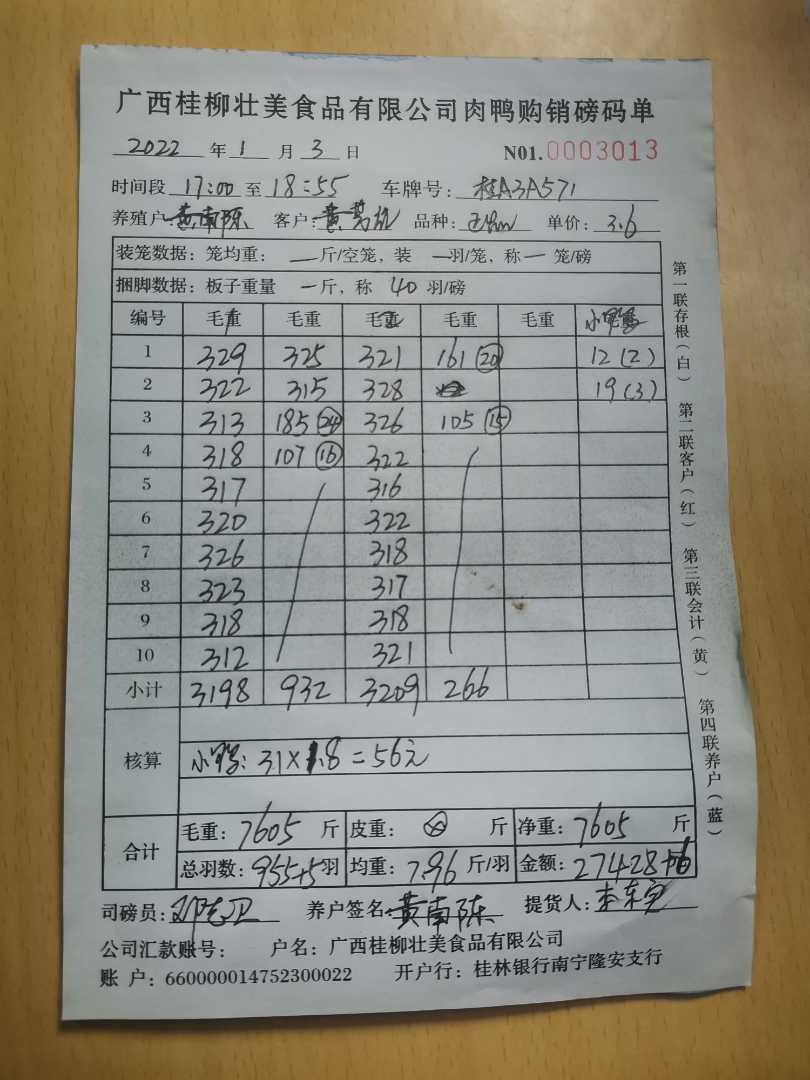 广西桂柳壮美食品有限公司肉鸭购销磅码单
2022 年 1 月 3 日 N01.0003013
时间段 17:00 至 18:55 车牌号: 桂A3A571
养殖户: 黄南陈 客户: 黄 品种: 单价: 3.6
装笼数据: 笼均重: — 斤/空笼, 装 — 羽/笼, 称 — 笼/磅
捆脚数据: 板子重量 — 斤, 称 40 羽/磅
编号 毛重 毛重 毛重 毛重 毛重 小鸭
1 329 325 321 161 (20) 12 (2)
2 322 315 328 19 (3)
3 313 185 (24) 326 105 (15)
4 318 107 (16) 322
5 317 316
6 320 322
7 326 318
8 323 317
9 318 318
10 312 321
小计 3198 932 3209 266
核算 小鸭: 31×1.8=56元
合计 毛重: 7605 斤 皮重: 斤 净重: 7605 斤
总羽数: 955+5 羽 均重: 7.96 斤/羽 金额: 27428+56
司磅员: 养户签名: 黄南陈 提货人:
公司汇款账号: 户名: 广西桂柳壮美食品有限公司
账 户: 660000014752300022 开户行: 桂林银行南宁隆安支行
第一联存根(白) 第二联客户(红) 第三联会计(黄) 第四联养户(蓝)